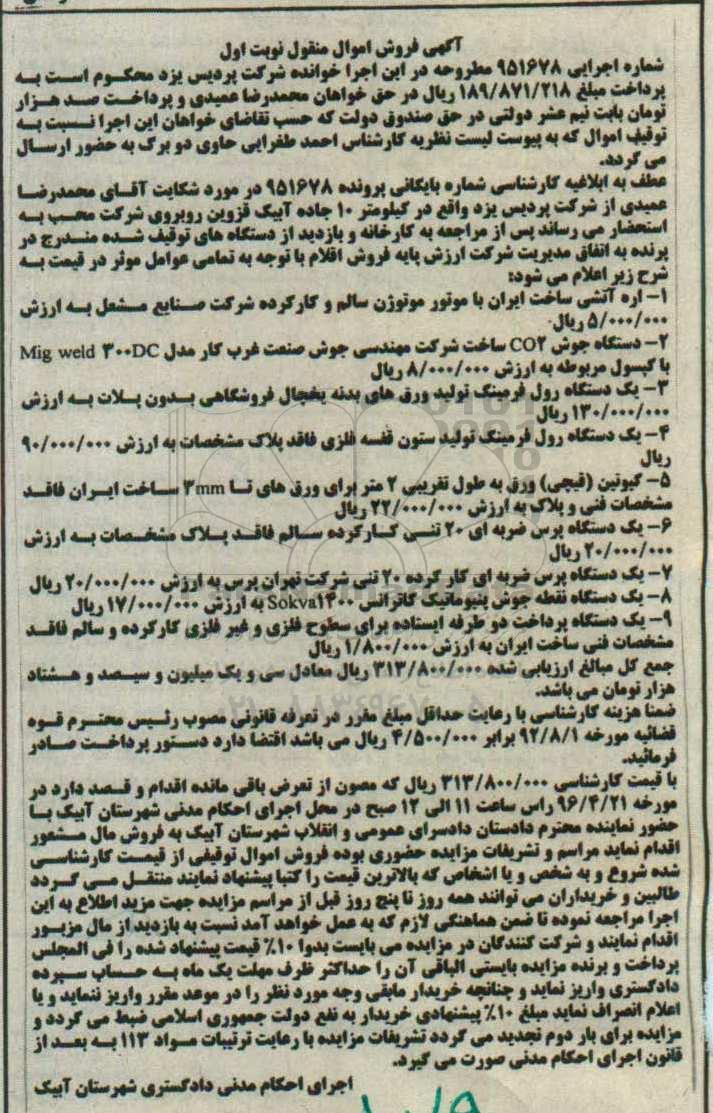 آگهی فروش اموال منقول نوبت اول
شماره اجرایی ۹۵۱۶۷۸ مطروحه در این اجرا خوانده شرکت پردیس یزد محکوم است به
پرداخت مبلغ ۱۸۹/۸۷۱/۲۱۸ ریال در حق خواهان محمدرضا عمیدی و پرداخت صد هزار
تومان بابت نیم عشر دولتی در حق صندوق دولت که حسب تقاضای خواهان این اجرا نسبت به
توقیف اموال که به پیوست لیست نظریه کارشناس احمد طغرایی حاوی دو برگ به حضور ارسال
می گردد.
عطف به ابلاغیه کارشناسی شماره بایگانی پرونده ۹۵۱۶۷۸ در مورد شکایت آقای محمدرضا
عمیدی از شرکت پردیس یزد واقع در کیلومتر ۱۰ جاده آبیک قزوین روبروی شرکت محب به
استحضار می رساند پس از مراجعه به کارخانه و بازدید از دستگاه های توقیف شده مندرج در
پرنده به اتفاق مدیریت شرکت ارزش پایه فروش اقلام با توجه به تمامی عوامل موثر در قیمت به
شرح زیر اعلام می شود:
۱- اره آتشی ساخت ایران با موتور موتوژن سالم و کارکرده شرکت صنایع مشعل به ارزش
۵/۰۰۰/۰۰۰ ریال.
۲- دستگاه جوش CO۲ ساخت شرکت مهندسی جوش صنعت غرب کار مدل Mig weld ۳۰۰DC
با کپسول مربوطه به ارزش ۸/۰۰۰/۰۰۰ ریال
۳- یک دستگاه رول فرمینگ تولید ورق های بدنه یخچال فروشگاهی بدون پلات به ارزش
۱۳۰/۰۰۰/۰۰۰ ریال
۴- یک دستگاه رول فرمینگ تولید ستون قفسه فلزی فاقد پلاک مشخصات به ارزش ۹۰/۰۰۰/۰۰۰
ریال
۵- گیوتین (قیچی) ورق به طول تقریبی ۲ متر برای ورق های تا ۳mm ساخت ایران فاقد
مشخصات فنی و پلاک به ارزش ۲۲/۰۰۰/۰۰۰ ریال
۶- یک دستگاه پرس ضربه ای ۲۰ تنی کارکرده سالم فاقد پلاک مشخصات به ارزش
۲۰/۰۰۰/۰۰۰ ریال
۷- یک دستگاه پرس ضربه ای کار کرده ۲۰ تنی شرکت تهران پرس به ارزش ۲۰/۰۰۰/۰۰۰ ریال
۸- یک دستگاه نقطه جوش پنیوماتیک کاترانس Sokva۱۴۰۰ به ارزش ۱۷/۰۰۰/۰۰۰ ریال
۹- یک دستگاه پرداخت دو طرفه ایستاده برای سطوح فلزی و غیر فلزی کارکرده و سالم فاقد
مشخصات فنی ساخت ایران به ارزش ۱/۸۰۰/۰۰۰ ریال
جمع کل مبالغ ارزیابی شده ۳۱۳/۸۰۰/۰۰۰ ریال معادل سی و یک میلیون و سیصد و هشتاد
هزار تومان می باشد.
ضمنا هزینه کارشناسی با رعایت حداقل مبلغ مقرر در تعرفه قانونی مصوب رئیس محترم قوه
قضائیه مورخه ۹۲/۸/۱ برابر ۴/۵۰۰/۰۰۰ ریال می باشد اقتضا دارد دستور پرداخت صادر
فرمائید.
با قیمت کارشناسی ۳۱۳/۸۰۰/۰۰۰ ریال که مصون از تعرض باقی مانده اقدام و قصد دارد در
مورخه ۹۶/۴/۲۱ راس ساعت ۱۱ الی ۱۲ صبح در محل اجرای احکام مدنی شهرستان آبیک با
حضور نماینده محترم دادستان دادسرای عمومی و انقلاب شهرستان آبیک به فروش مال مشعور
اقدام نماید مراسم و تشریفات مزایده حضوری بوده فروش اموال توقیفی از قیمت کارشناسی
شده شروع و به شخص و یا اشخاص که بالاترین قیمت را کتبا پیشنهاد نمایند منتقل می گردد
طالبین و خریداران می توانند همه روز تا پنج روز قبل از مراسم مزایده جهت مزید اطلاع به این
اجرا مراجعه نموده تا ضمن هماهنگی لازم که به عمل خواهد آمد نسبت به بازدید از مال مزبور
اقدام نمایند و شرکت کنندگان در مزایده می بایست بدوا ۱۰٪ قیمت پیشنهاد شده را فی المجلس
پرداخت و برنده مزایده بایستی الباقی آن را حداکثر ظرف مهلت یک ماه به حساب سپرده
دادگستری واریز نماید و چنانچه خریدار مابقی وجه مورد نظر را در موعد مقرر واریز ننماید و یا
اعلام انصراف نماید مبلغ ۱۰٪ پیشنهادی خریدار به نفع دولت جمهوری اسلامی ضبط می گردد و
مزایده برای بار دوم تجدید می گردد تشریفات مزایده با رعایت ترتیبات مواد ۱۱۳ به بعد از
قانون اجرای احکام مدنی صورت می گیرد.
اجرای احکام مدنی دادگستری شهرستان آبیک